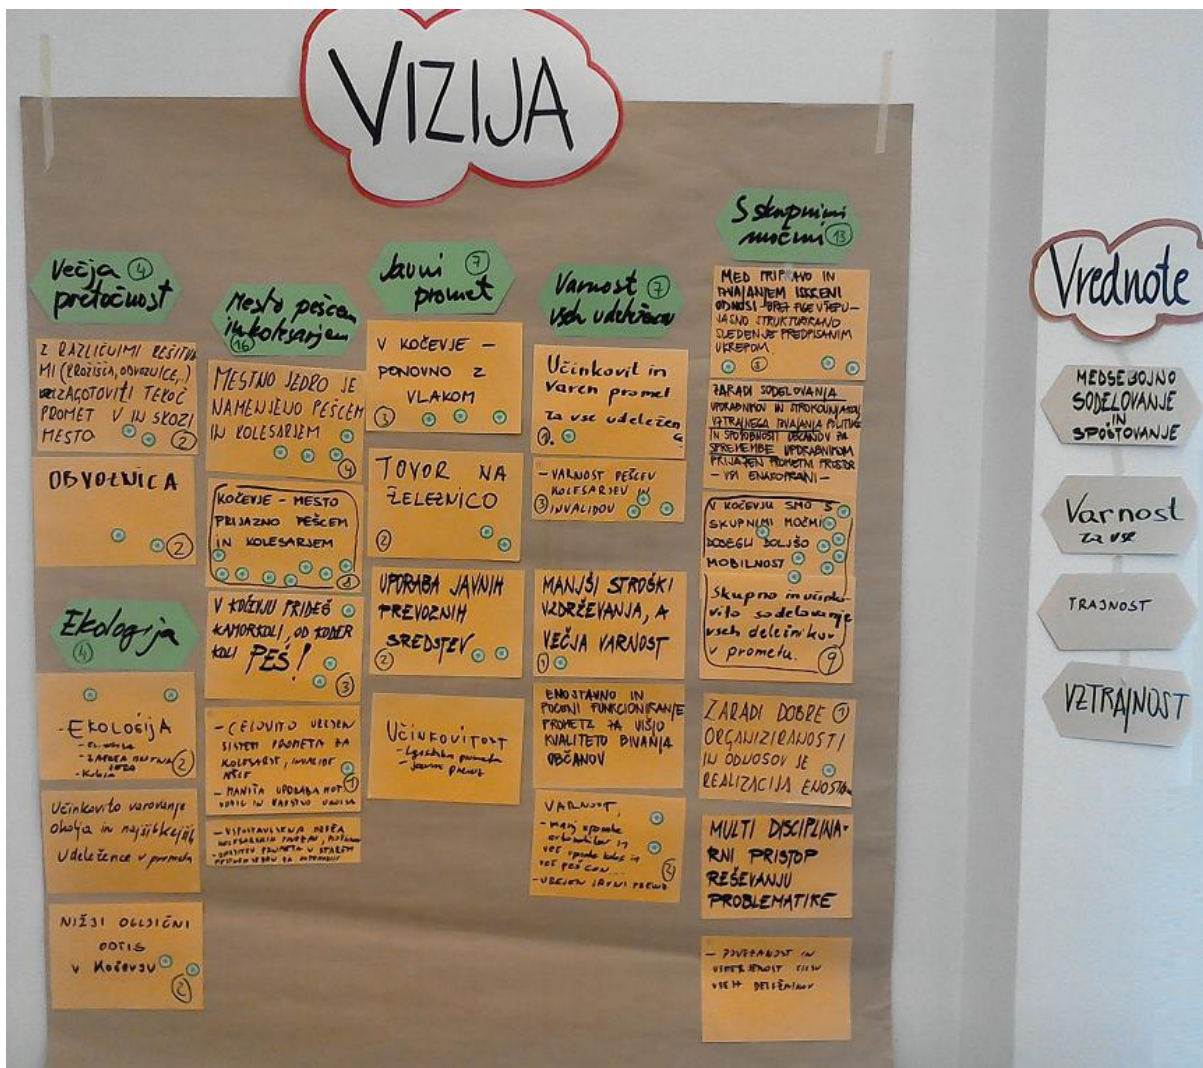 VIZIJA
Večja 4
pretočnost
Z RAZLIČNIMI REŠITVA
MI (KROŽIŠČA, OBVOZNICE,..)
ZAGOTOVITI TEKOČ
PROMET V IN SKOZI
MESTO
2
OBVOZNICA
2
Ekologija
4
- EKOLOGIJA
2
Učinkovito varovanje
okolja in najšibkejših
udeležence v prometu
NIŽJI OGLJIČNI
ODTIS
V KOČEVJU
2
Mesto pešcem
in kolesarjem
16
MESTNO JEDRO JE
NAMENJENO PEŠCEM
IN KOLESARJEM
4
KOČEVJE - MESTO
PRIJAZNO PEŠCEM
IN KOLESARJEM
8
V KOČEVJU PRIDEŠ
KAMORKOLI, OD KODER
KOLI PEŠ!
3
- CELOVITO UREJEN
SISTEM PROMETA ZA
KOLESARJE, INVALIDE
PEŠCE
- MANJŠA UPORABA MOT.
VOZIL IN VARSTVO OKOLJA
1
Javni 7
promet
V KOČEVJE -
PONOVNO Z
VLAKOM
3
TOVOR NA
ŽELEZNICO
2
UPORABA JAVNIH
PREVOZNIH
SREDSTEV
2
UČINKOVITOST
Varnost 7
vseh udeležencev
Učinkovit in
varen promet
za vse udeležence
1.
- VARNOST PEŠCEV
KOLESARJEV IN
INVALIDOV
3
MANJŠI STROŠKI
VZDRŽEVANJA, A
VEČJA VARNOST
1
ENOSTAVNO IN
POCENI FUNKCIONIRANJE
PROMETA ZA VIŠJO
KVALITETO BIVANJA
OBČANOV
VARNOST,
- manj uporabe
avtomobilov in
več uporabe koles in
več pešcev...
- UREJEN JAVNI PREVOZ
2
S skupnimi
močmi 13
MED PRIPRAVO IN
IZVAJANJEM ISKRENI
ODNOSI
JASNO STRUKTURIRANO
SLEDENJE PREDPISANIM
UKREPOM.
ZARADI SODELOVANJA
UPORABNIKOV IN STROKOVNJAKOV,
VZTRAJNEGA IZVAJANJA POLITIKE
IN SPOSOBNOSTI OBČANOV ZA
SPREMEMBE UPORABNIKOM
PRIJAZEN PROMETNI PROSTOR
- VSI ENAKOPRAVNI -
V KOČEVJU SMO S
SKUPNIMI MOČMI
DOSEGLI BOLJŠO
MOBILNOST
Skupno in učinko-
vito sodelovanje
vseh deležnikov
v prometu.
9
ZARADI DOBRE 1
ORGANIZIRANOSTI
IN ODNOSOV JE
REALIZACIJA ENOSTAVNA
MULTI DISCIPLINA-
RNI PRISTOP
REŠEVANJU
PROBLEMATIKE
- POVEZANOST IN
USKLAJENOST CILJEV
VSEH DELEŽNIKOV
Vrednote
MEDSEBOJNO
SODELOVANJE
IN
SPOŠTOVANJE
Varnost
za vse
TRAJNOST
VZTRAJNOST